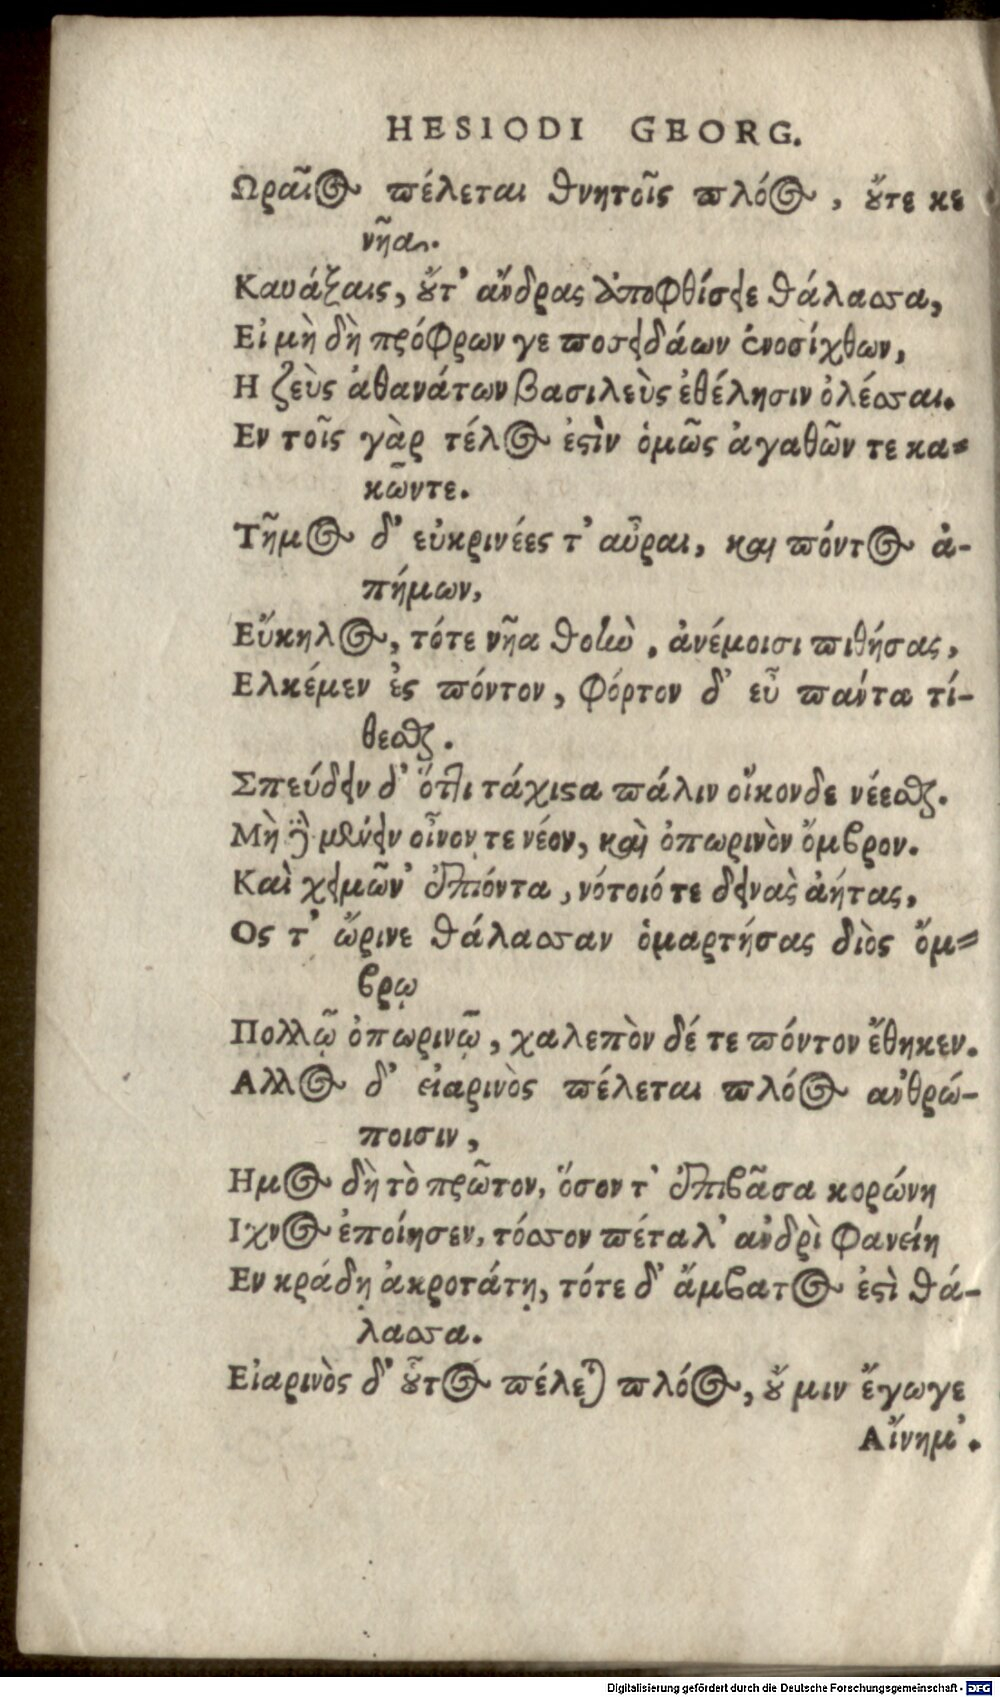 HESIODI GEORG.
Ωραῖος πέλεται θνητοῖς πλόος, οὔτε κε
νῆα.
Καυάξαις, οὔτ' ἄνδρας ἀποφθίσειε θάλασσα,
Εἰ μὴ δὴ πρόφρων γε ποσειδάων ἐνοσίχθων,
Η ζεὺς ἀθανάτων βασιλεὺς ἐθέλησιν ὀλέσσαι.
Εν τοῖς γὰρ τέλος ἐςὶν ὁμῶς ἀγαθῶν τε κα=
κῶντε.
Τῆμος δ' εὐκρινέες τ' αὖραι, καὶ πόντος ἀ-
πήμων,
Εὔκηλος, τότε νῆα θοὴν, ἀνέμοισι πιθήσας,
Ελκέμεν ἐς πόντον, φόρτον δ' εὖ πάντα τί-
θεσθαι.
Σπεύδειν δ' ὅτι τάχιςα πάλιν οἴκονδε νέεσθαι.
Μὴ δὲ μένειν οἶνον τε νέον, καὶ ὀπωρινὸν ὄμβρον.
Καὶ χειμῶν' ἐπιόντα, νότοιό τε δεινὰς ἀήτας,
Ος τ' ὤρινε θάλασσαν ὁμαρτήσας διὸς ὄμ=
βρῳ
Πολλῷ ὀπωρινῷ, χαλεπὸν δέ τε πόντον ἔθηκεν.
Αλλος δ' εἰαρινὸς πέλεται πλόος ἀνθρώ-
ποισιν,
Ημος δὴ τὸ πρῶτον, ὅσον τ' ἐπιβᾶσα κορώνη
Ιχνος ἐποίησεν, τόσσον πέταλ' ἀνδρὶ φανείη
Εν κράδῃ ἀκροτάτῃ, τότε δ' ἄμβατος ἐςὶ θά-
λασσα.
Εἰαρινὸς δ' οὗτος πέλεται πλόος, οὔ μιν ἔγωγε
Αἴνημ'.
Digitalisierung gefördert durch die Deutsche Forschungsgemeinschaft - DFG